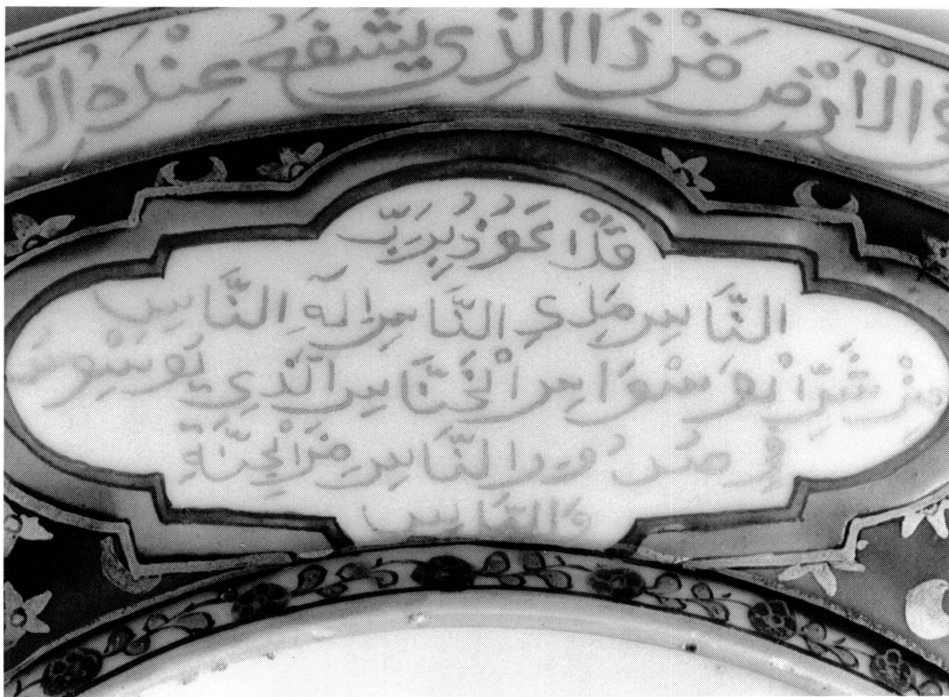 الْأَرْضِ مَنْ ذَا الَّذِي يَشْفَعُ عِنْدَهُ إِلَّا
قُلْ أَعُوذُ بِرَبِّ
النَّاسِ مَلِكِ النَّاسِ إِلَٰهِ النَّاسِ
مِنْ شَرِّ الْوَسْوَاسِ الْخَنَّاسِ الَّذِي يُوَسْوِسُ
فِي صُدُورِ النَّاسِ مِنَ الْجِنَّةِ
وَالنَّاسِ